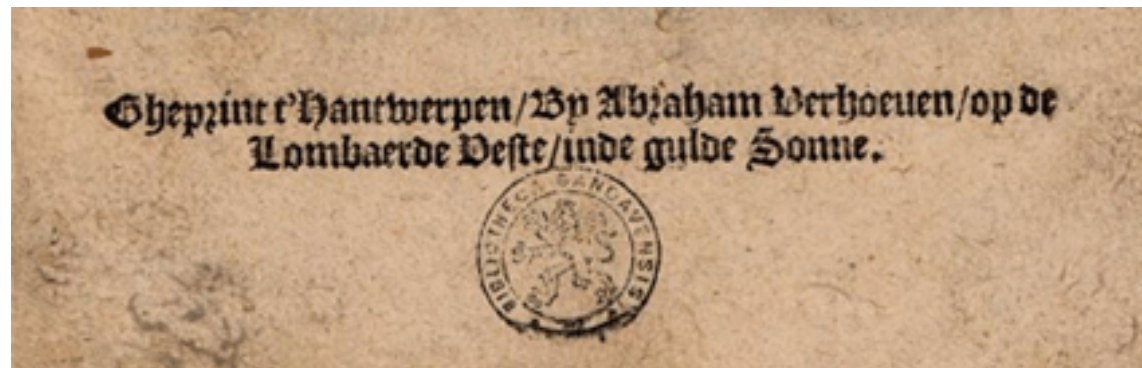 Gheprint t'Hantwerpen/By Abraham Verhoeuen/op de
Lombaerde Veste/inde gulde Sonne.
BIBLIOTHECA GANDAVENSIS